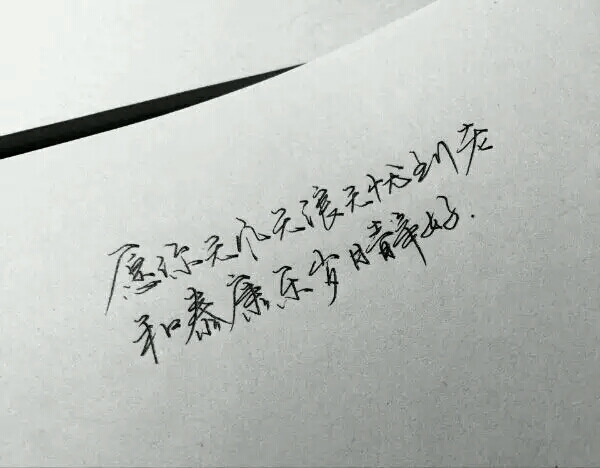 愿你无风无浪无忧到老
和泰康乐岁月静好.